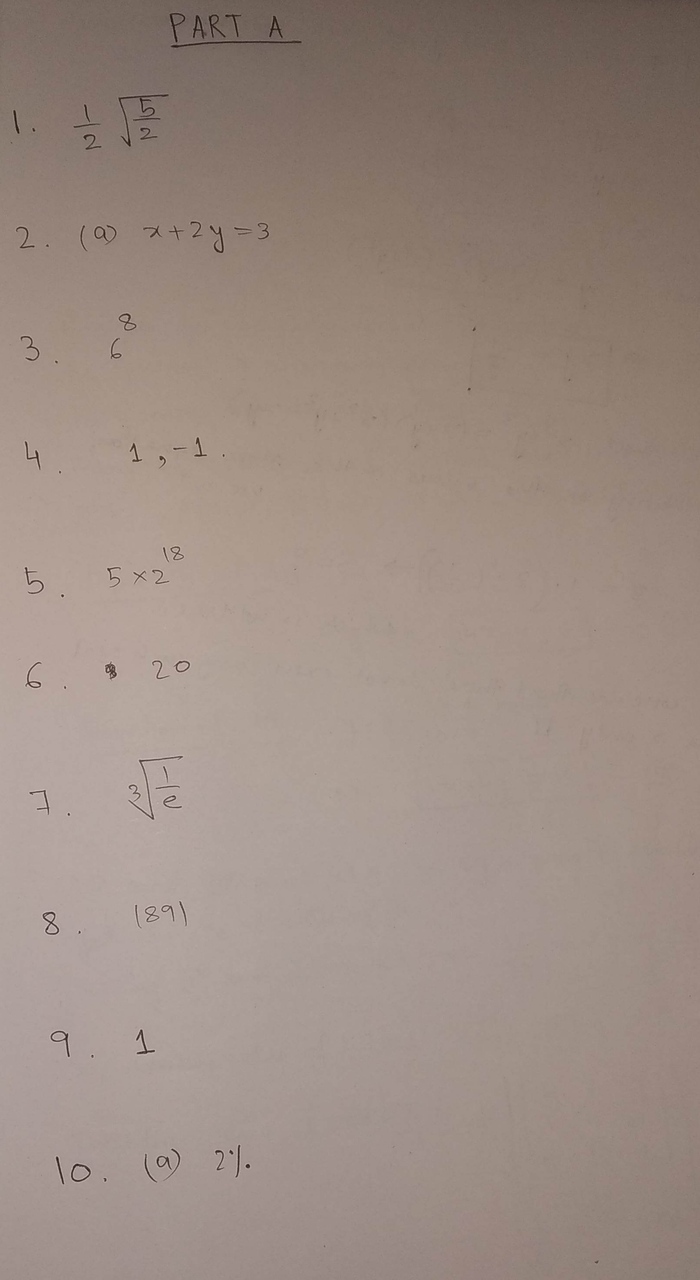 PART A
1. 1/2 √(5/2)
2. (a) x+2y=3
3. 6^8
4. 1, -1.
5. 5×2^18
6. 20
7. ∛(1/e)
8. 1891
9. 1
10. (a) 2%.